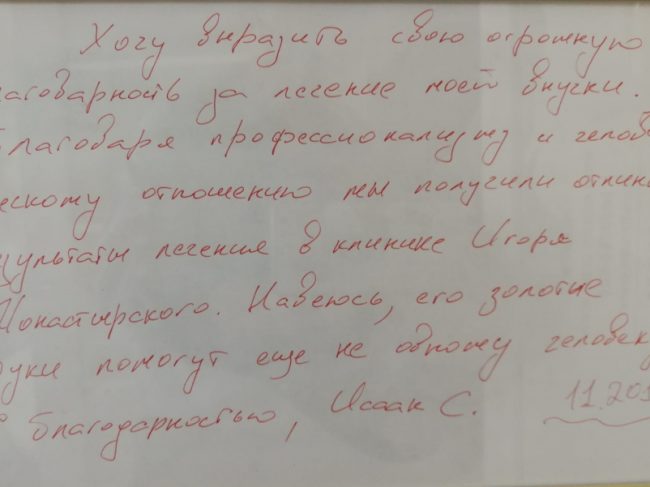 Хочу выразить свою огромную
лагодарность за лечение моей внучки.
Благодаря профессионализму и челов
ческому отношению мы получили отличн
зультаты лечения в клинике Игоря
Монастырского. Надеюсь, его золотые
руки помогут еще не одному человеку
С благодарностью, Исаак С. 11.201